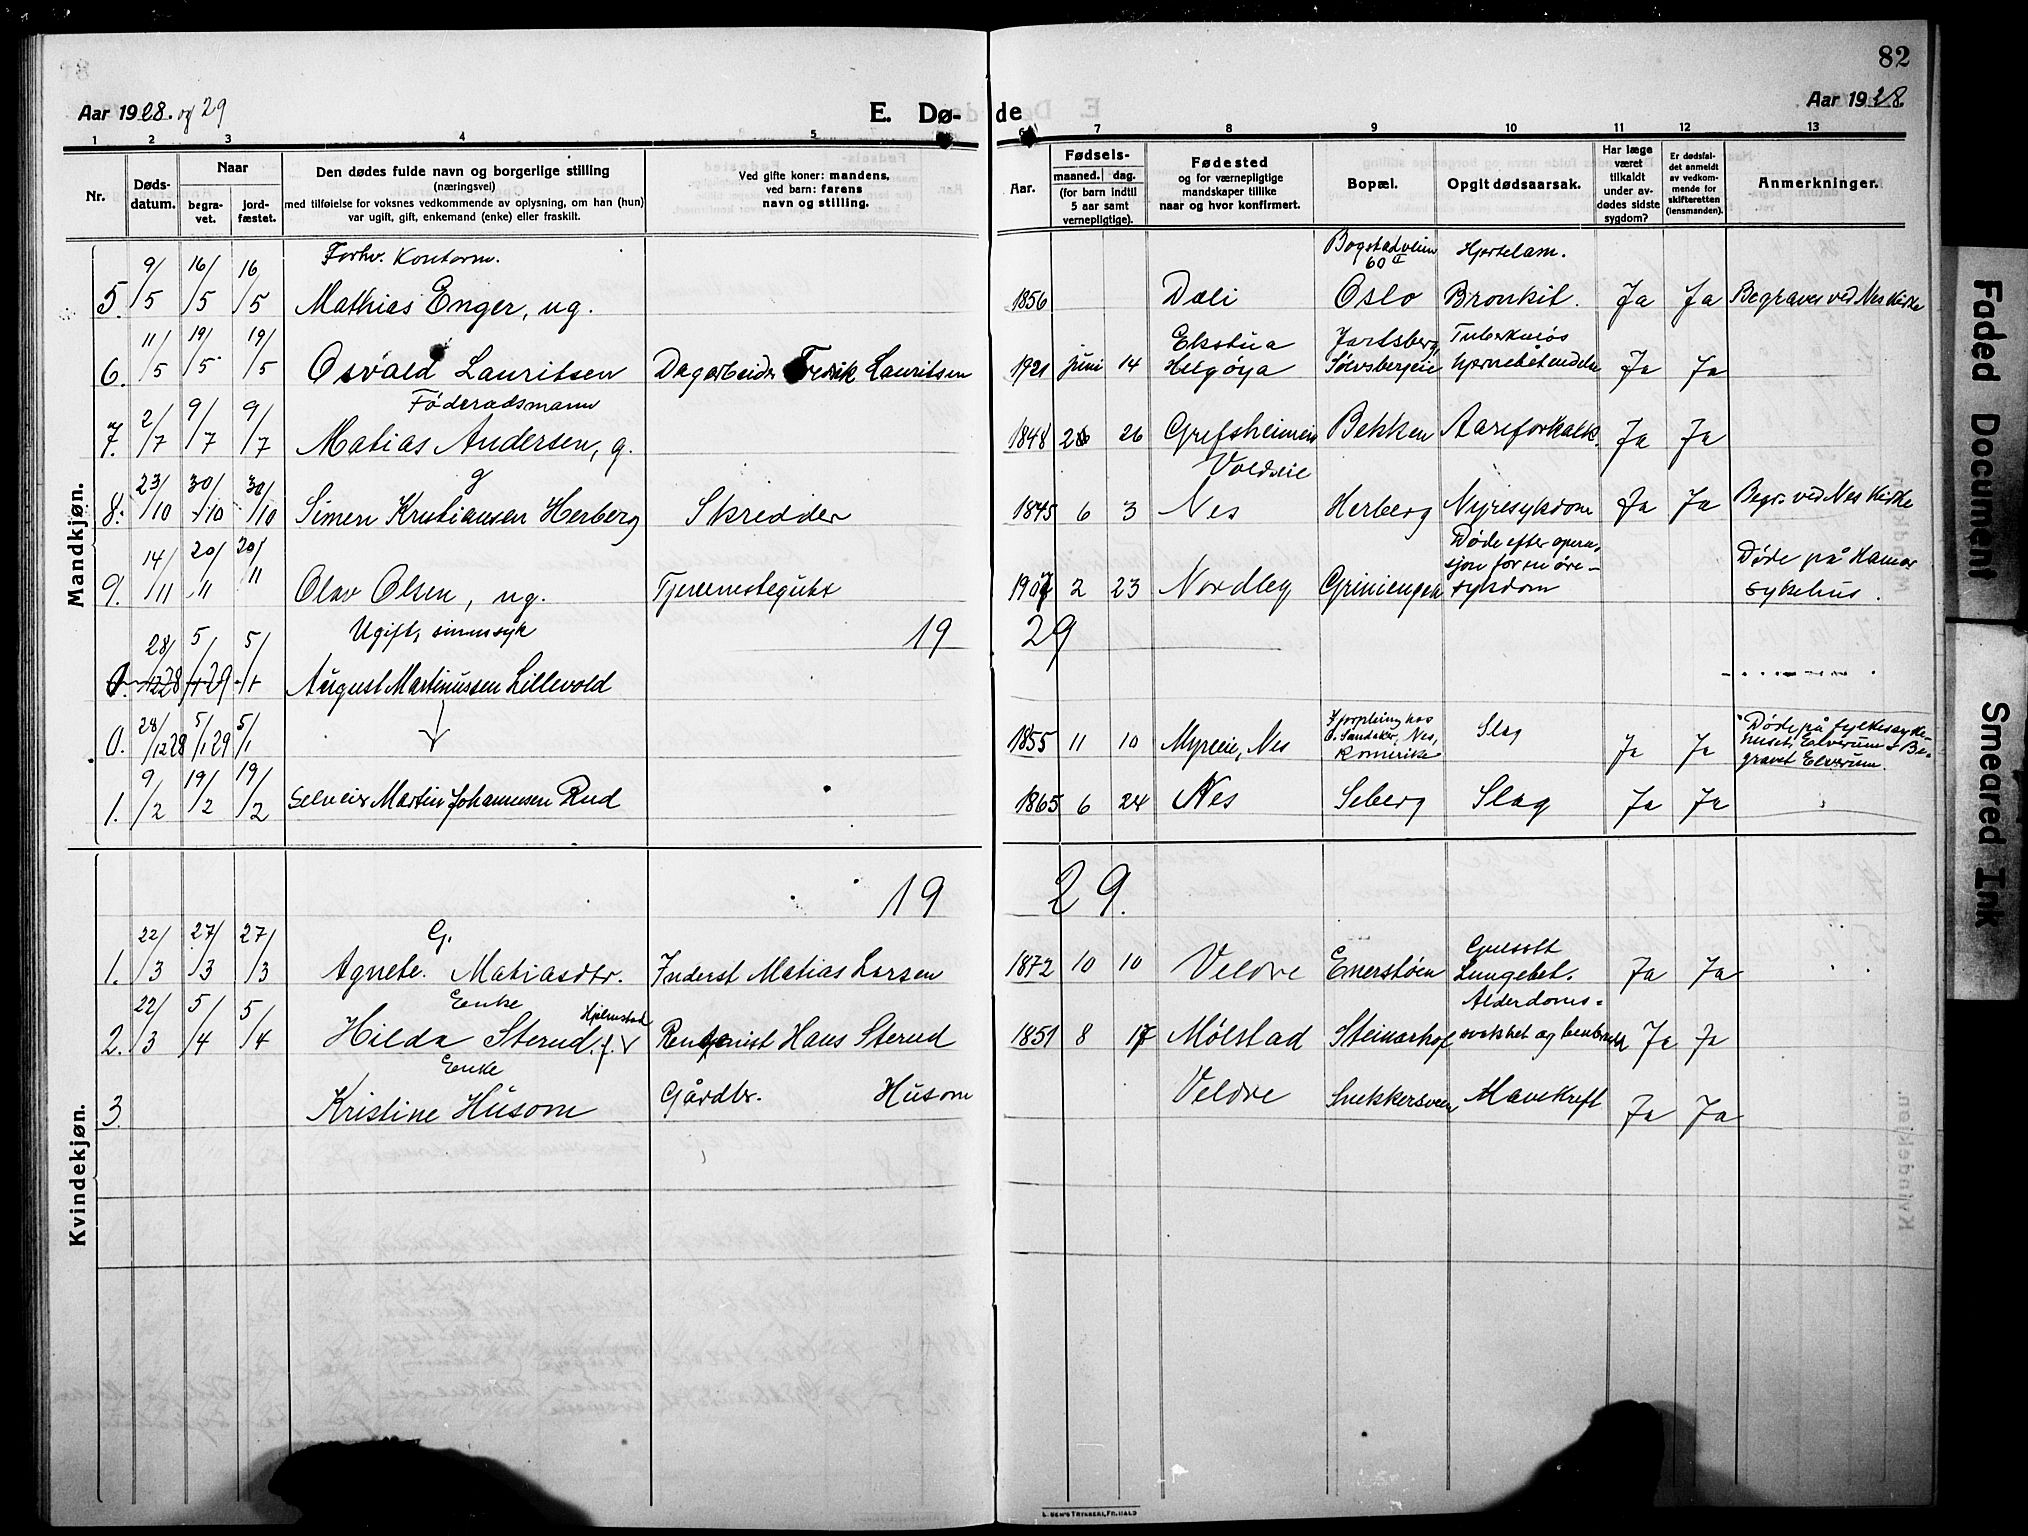 82
Aar 1928. og 29
E. Dø- de
Aar 1928.
1 2 3 4 5 6 7 8 9 10 11 12 13
Nr.
Døds-
datum.
Naar
begra-
vet.
jord-
fæstet.
Den dødes fulde navn og borgerlige stilling
(næringsvei)
med tilføielse for voksnes vedkommende av oplysning, om han (hun)
var ugift, gift, enkemand (enke) eller fraskilt.
Ved gifte koner: mandens,
ved barn: farens
navn og stilling.
Aar.
Fødsels-
maaned. dag.
(for barn indtil
5 aar samt
vernepligtige).
Fødested
og for værnepligtige
mandskaper tillike
naar og hvor konfirmert.
Bopæl.
Opgit dødsaarsak.
Har læge
været
tilkaldt
under av-
dødes sidste
sygdom?
Er dødsfal-
det anmeldt
av vedkom-
mende for
skifteretten
(lensmanden).
Anmerkninger.
Mandkjøn.
Forhv. Kontorm. Bogstadveien Hjertelam.
60 II
5. 9/5 16/5 16/5 Mathias Enger, ug. 1856 Dæli Oslo Bronkit. Ja Ja Begraves ved Nes Kirke
Ekstua Jartsberg, Tuberkuløs
6. 11/5 19/5 19/5 Osvald Lauritsen Dagarbeider Fredrik Lauritsen 1921 juni 14 Helgøya Sølvsbergeie hjernebetendelse Ja Ja
Föderadsmann
7. 2/7 9/7 9/7 Matias Andersen, g. 1848 26 Grefsheimeie Bekken Aareforkalk. Ja Ja
g Voldseie
8. 23/10 30/10 30/10 Simen Kristiansen Herberg Skredder 1845 6 3 Nes Herberg Nyresykdom Ja Ja Begr. ved Nes Kirke
Døde efter opera-
sjon for en øre-
9. 14/11 20/11 20/11 Olav Olsen, ug. Tjenernestegutt 1907 2 23 Nordley Griniengen sykdom Døde på Hamar
sykehus.
19 29
Ugift, sinnsyk
28/12 28 5/1 29 5/1 August Martinussen Lillevold
0. 28/12 28 5/1 29 5/1 1855 11 10 Myreie, Nes Forpleining hos
O. Sandaker, Nes,
Romerike Slag Ja Ja Døde på fylkessyke-
huset, Elverum. Be-
gravet Elverum.
1. 9/2 19/2 19/2 Selveier Martin Johannesen Rud 1865 6 24 Nes Seberg Slag Ja Ja
Kvindekjøn.
19 29.
G. Gulsott
1. 22/3 27/3 27/3 Agnete. Matiasdtr. Inderst Matias Larsen 1872 10 10 Veldre Emerstøen Lungebet. Ja Ja
Enke Hjelmstad Alderdoms-
2. 22/3 5/4 5/4 Hilda Sterud. f. Rentenist Hans Sterud 1851 8 17 Mølstad Steinarhof svakhet og benbrudd Ja Ja
Enke
3 Kristine Husom Gårdbr. Husom Veldre Snekkersveen Mavekreft Ja Ja
Faded Document
Smeared Ink